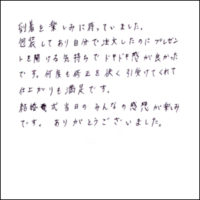 到着を楽しみに待っていました。
包装してあり自分で注文したのにプレゼン
トを開ける気持ちでドキドキ感が良かった
です。何度も修正を快く引受けてくれて
仕上がりも満足です。
結婚式当日のみんなの感想が楽しみ
です。ありがとうございました。